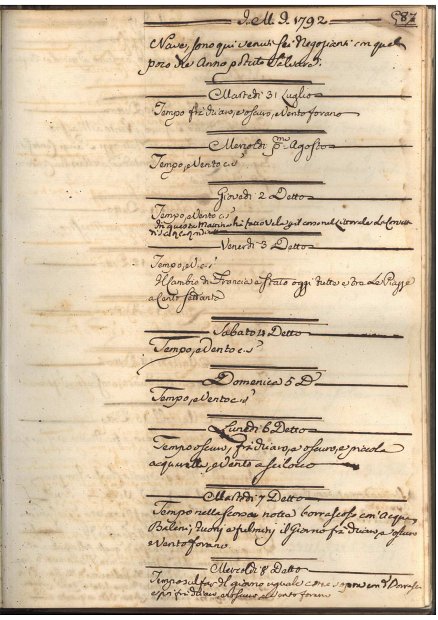 J. M. J. 1792 587
Nave, sono qui venuti sei Negozianti con quel
poco che Anno potuto salvare.
Martedi 31 Luglio
Tempo frà chiaro, e oscuro, e Vento forano
Mercoldi pmo Agosto
Tempo, e Vento c.s.
Giovedi 2 Detto
Tempo, e Vento c.s.
di questa Mattina hà fatto Vela
Venerdi 3 Detto
Tempo, e V. c.s.
Il Cambio di Francia è stato oggi tutta
a Cento settanta
Sabato 4 Detto
Tempo, e Vento c.s.
Domenica 5 Do
Tempo, e Vento c.s.
Lunedi 6 Detto
Tempo oscuro, frà chiaro, e oscuro, e piccola
acquarella, e Vento a scilocco
Martedi 7 Detto
Tempo nella scorsa notte borrascoso con Acqua
Baleni, tuoni e fulmini il Giorno frà chiaro, e oscuro
e Vento forano
Mercoldi 8 Detto
Tempo sul far del giorno uguale come sopra con Borrasca
e poi frà chiaro, e oscuro, e Vento forano